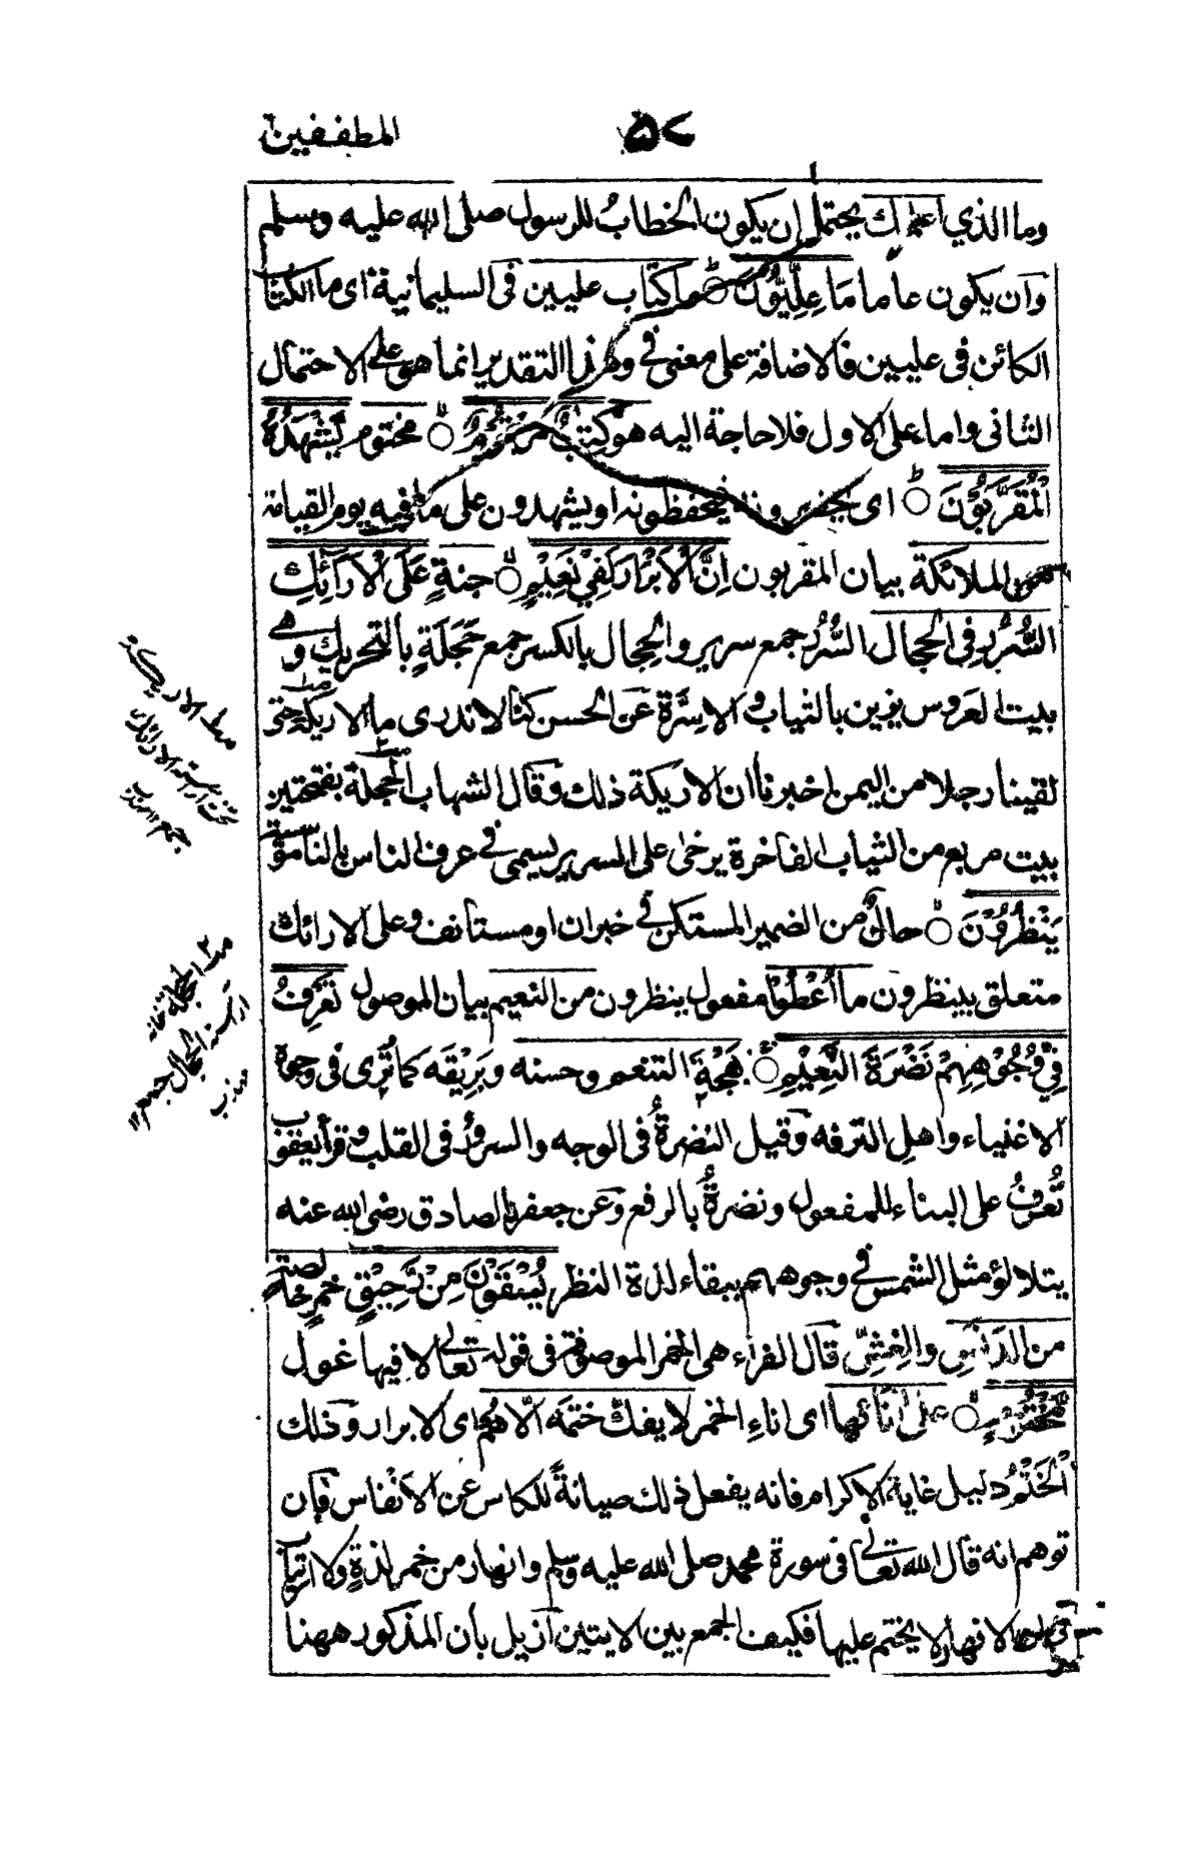 المطففين ٥٧
وما الذي اعلمك يحتمل ان يكون الخطابُ للرسول صلى الله عليه وسلم
وان يكون عاما مَا عِلِّيُّوْنَ ○ ما كتاب عليين فى السليمانية اى ما الكتاب
الكائن فى عليين فالاضافة على معنى فى وهذا التقدير انما هو على الاحتمال
الثانى واما على الاول فلا حاجة اليه هو كِتٰبٌ مَّرْقُوْمٌ ○ مختوم يَّشْهَدُهُ
الْمُقَرَّبُوْنَ ○ اى يحضرونه فيحفظونه او يشهدون على ما فيه يوم القيامة
من الملائكة بيان المقربون اِنَّ الْاَبْرَارَ لَفِيْ نَعِيْمٍ ○ جنةٍ عَلَى الْاَرَآئِكِ
السُّرُرِ فى الحجال السُّرُر جمع سرير والحِجال بالكسر جمع حَجَلَةٍ بالتحريك وهى
بيت العروس يزين بالثياب والاسِرَّة عَن الحسن كنا لا ندرى ما الاريكة حتى
لقينا رجلا من اليمن اخبرنا ان الاريكة ذلك وقال الشهاب الحجلة بفتحتين
بيت مربع من الثياب الفاخرة يرخى على السرير يسمى فى عرف الناس بالناموسية
يَنْظُرُوْنَ ○ حالٌ من الضمير المستكن فى خبر ان او مستانف وعلى الارائك
متعلق بينظرون ما اُعْطُوْا مفعول ينظرون من النعيم بيان الموصول تَعْرِفُ
فِيْ وُجُوْهِهِمْ نَضْرَةَ النَّعِيْمِ ○ بَهْجَةَ التنعم وحسنه وبَرِيْقَه كما تُرٰى فى وجوه
الاغنياء واهل الترفه وَقيل النضرةُ فى الوجه والسرور فى القلب وقرأ يعقوب
تُعْرَفُ على البناء للمفعول ونضرةُ بالرفع وَعن جعفر الصادق رضى الله عنه
يتلالؤ مثل الشمس فى وجوههم ببقاء لذة النظر يُسْقَوْنَ مِنْ رَّحِيْقٍ خمرٍ خالصة
من الدَنَسِ والغِشِّ قَال الفراء هى الخمر الموصوفة فى قوله تعالى لا فيها غول
مَّخْتُوْمٍ ○ على اِنائها اى اناءِ الخمر لا يفك ختمَه اِلّا هُمْ اى الابرار وَذلك
الْخَتْمُ دليل غاية الاكرام فانه يفعل ذلك صيانةً للكاس عن الانفاس فإن
توهم انه قال الله تعالى فى سورة محمد صلى الله عليه وسلم وانهار من خمر لذةٍ ولا ارتياب
فى ان الانهار لا يختم عليها فكيف الجمع بين الايتين اُزيل بأن المذكور ههنا